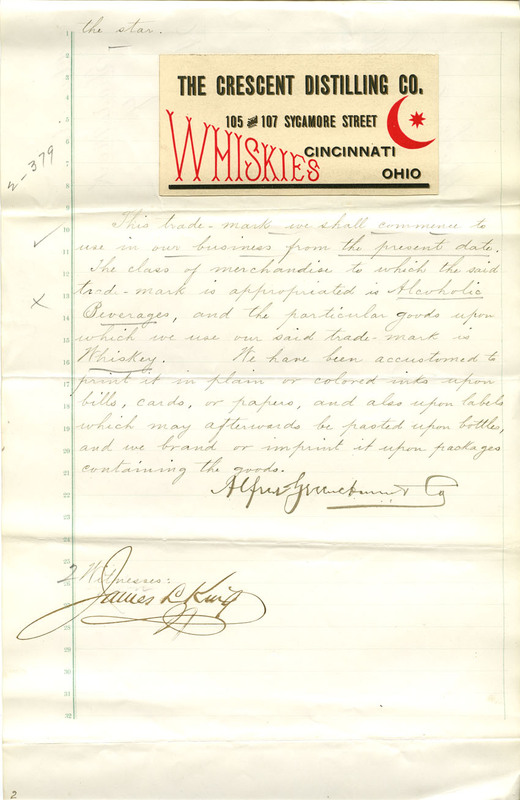 the star.
THE CRESCENT DISTILLING CO.
105 AND 107 SYCAMORE STREET
WHISKIES
CINCINNATI
OHIO
2-379
This trade-mark we shall commence to
use in our business from the present date.
The class of merchandise to which the said
trade-mark is appropriated is Alcoholic
Beverages, and the particular goods upon
which we use our said trade-mark is
Whiskey. We have been accustomed to
print it in plain or colored inks upon
bills, cards, or papers, and also upon labels
which may afterwards be pasted upon bottles,
and we brand or imprint it upon packages
containing the goods.
Alfred Greenebaum & Co
2 Witnesses:
James L King
2